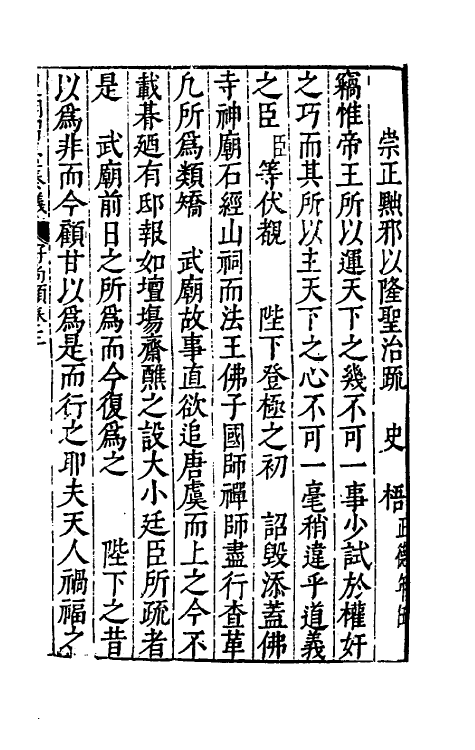 崇正黜邪以隆聖治疏 史梧
竊惟帝王所以運天下之幾不可一事少試於權奸
之巧而其所以主天下之心不可一毫稍違乎道義
之臣臣等伏覩 陛下登極之初 詔毀添蓋佛
寺神廟石經山祠而法王佛子國師禪師盡行查革
凡所爲類矯 武廟故事直欲追唐虞而上之今不
載朞廼有邸報如壇場齋醮之設大小廷臣所疏者
是 武廟前日之所爲而今復爲之 陛下之昔
以爲非而今顧甘以爲是而行之耶夫天人禍福之